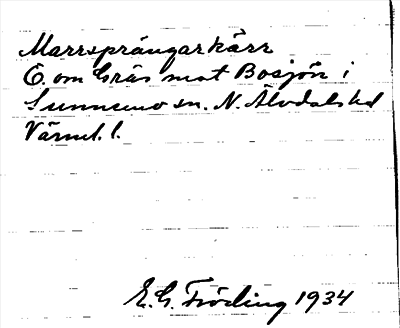 Marrsprångarkärr
Ö. om Gräs mot Bosjön i
Sunnemo sn. N. Älvdals hd
Värml. l.
E. G. Fröding 1934